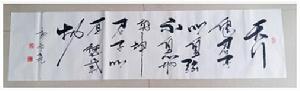 天行
健君子
以自强
不息地
势坤
君子以
厚德载
物